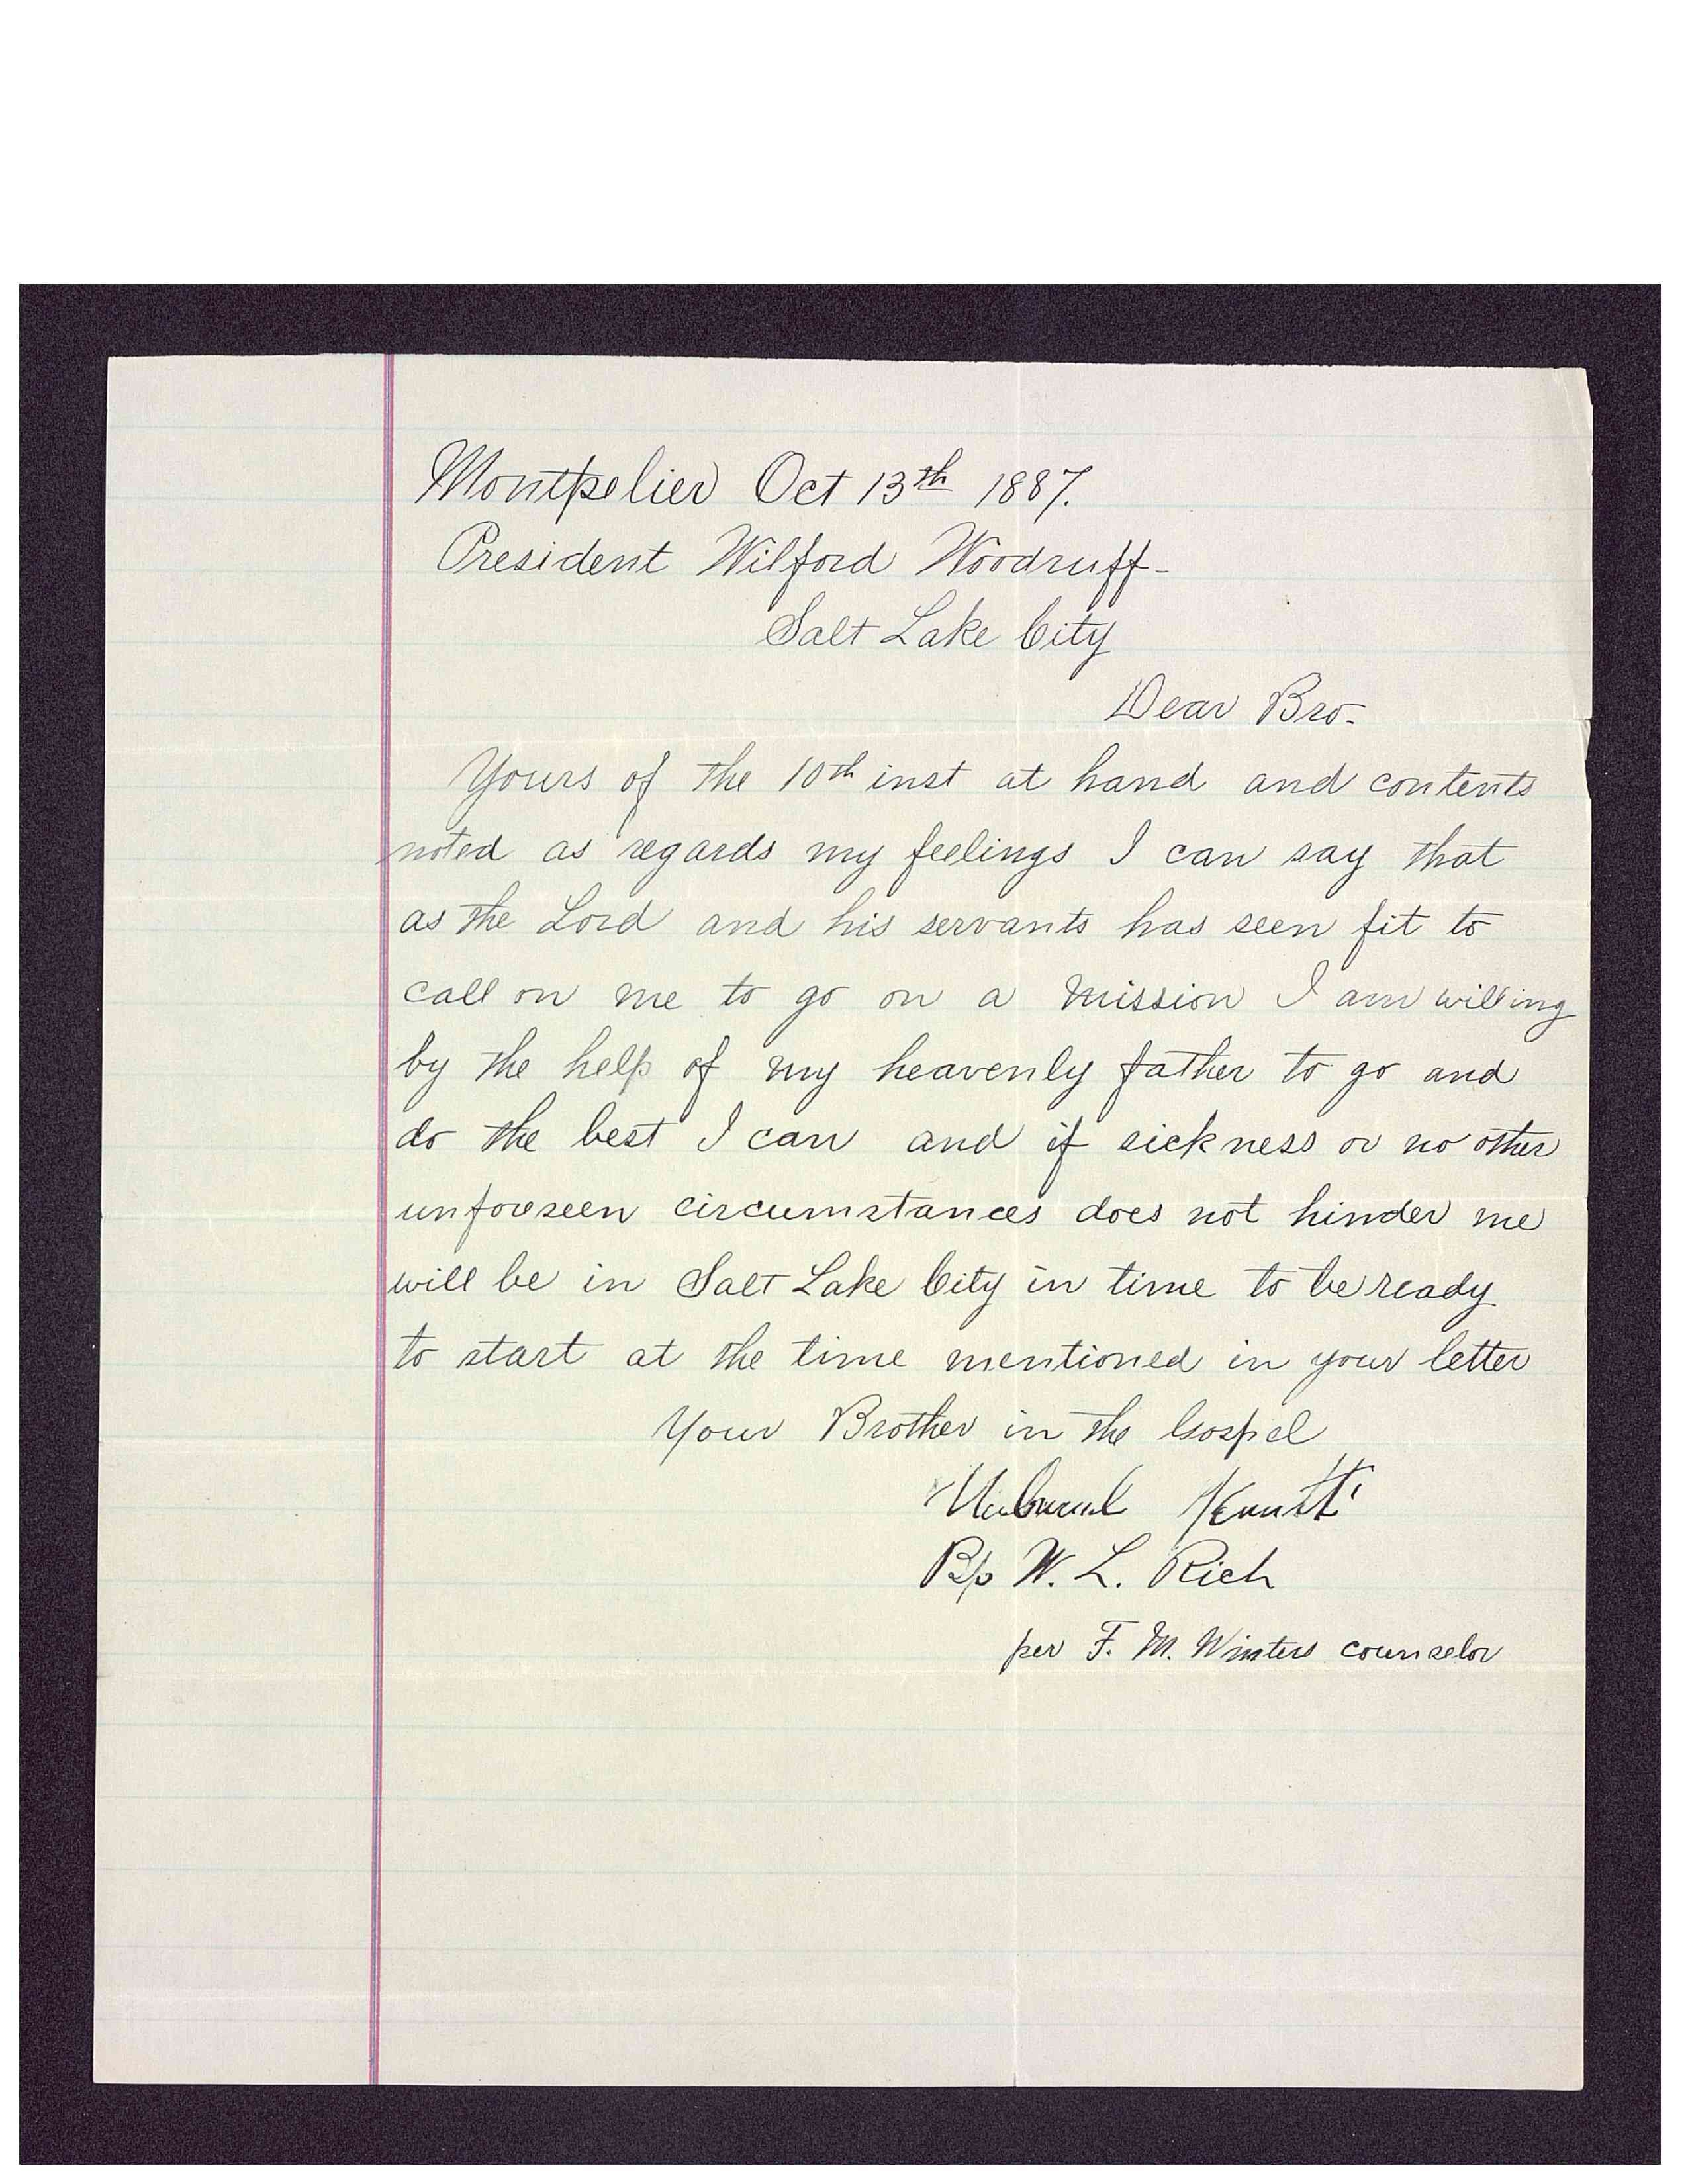 Montpelier Oct 13th 1887.
President Wilford Woodruff-
Salt Lake City
Dear Bro-
Yours of the 10th inst at hand and contents
noted as regards my feelings I can say that
as the Lord and his servants has seen fit to
call on me to go on a mission I am willing
by the help of my heavenly father to go and
do the best I can and if sickness or no other
unforeseen circumstances does not hinder me
will be in Salt Lake City in time to be ready
to start at the time mentioned in your letter
Your Brother in the Gospel
Bp W. L. Rich
per F. M. Winters counselor